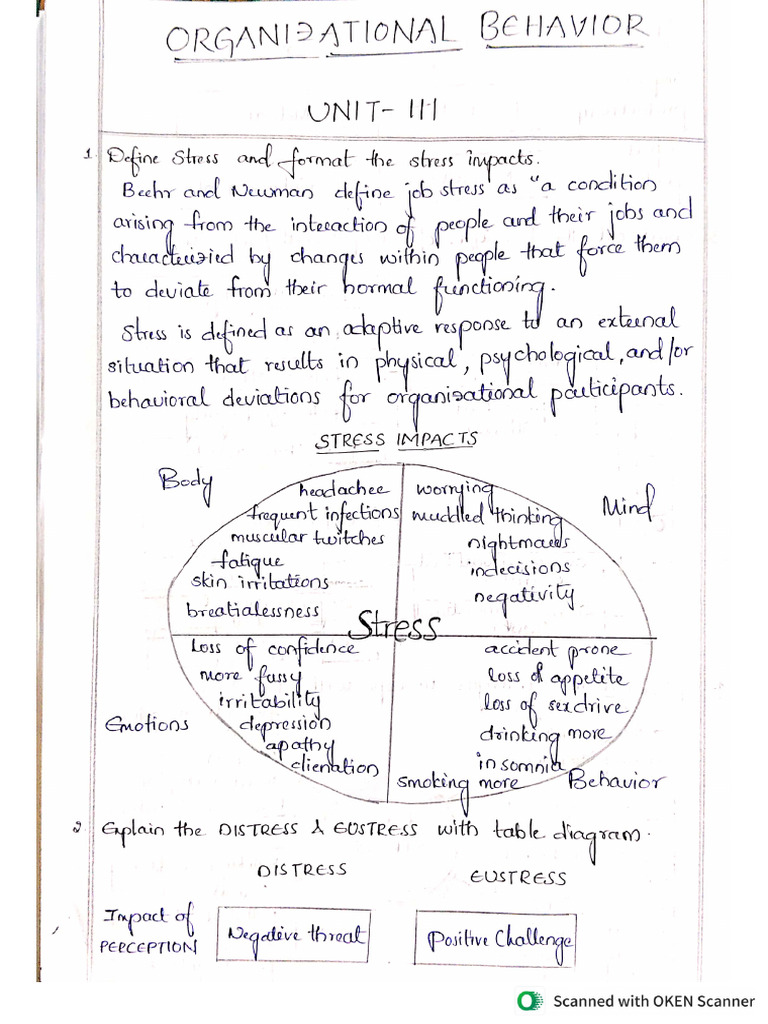 ORGANIZATIONAL BEHAVIOR
UNIT-III
1. Define Stress and format the stress impacts.
Beehr and Newman define job stress as "a condition
arising from the interaction of people and their jobs and
characterizied by changes within people that force them
to deviate from their normal functioning.
Stress is defined as an adaptive response to an external
situation that results in physical, psychological, and/or
behavioral deviations for organizational participants.
STRESS IMPACTS
Body
headachee
frequent infections
muscular twitches
fatigue
skin irritations
breatialessness
worrying
muddled thinking
nightmares
indecisions
negativity
Mind
Stress
Loss of confidence
more fussy
irritability
Emotions
depression
apathy
clienation
accident prone
loss of appetite
loss of sexdrive
drinking more
insomnia
smoking more
Behavior
2 Explain the DISTRESS & EUSTRESS with table diagram.
DISTRESS EUSTRESS
Impact of
PERCEPTION
Negative threat
Positive Challenge
Scanned with OKEN Scanner